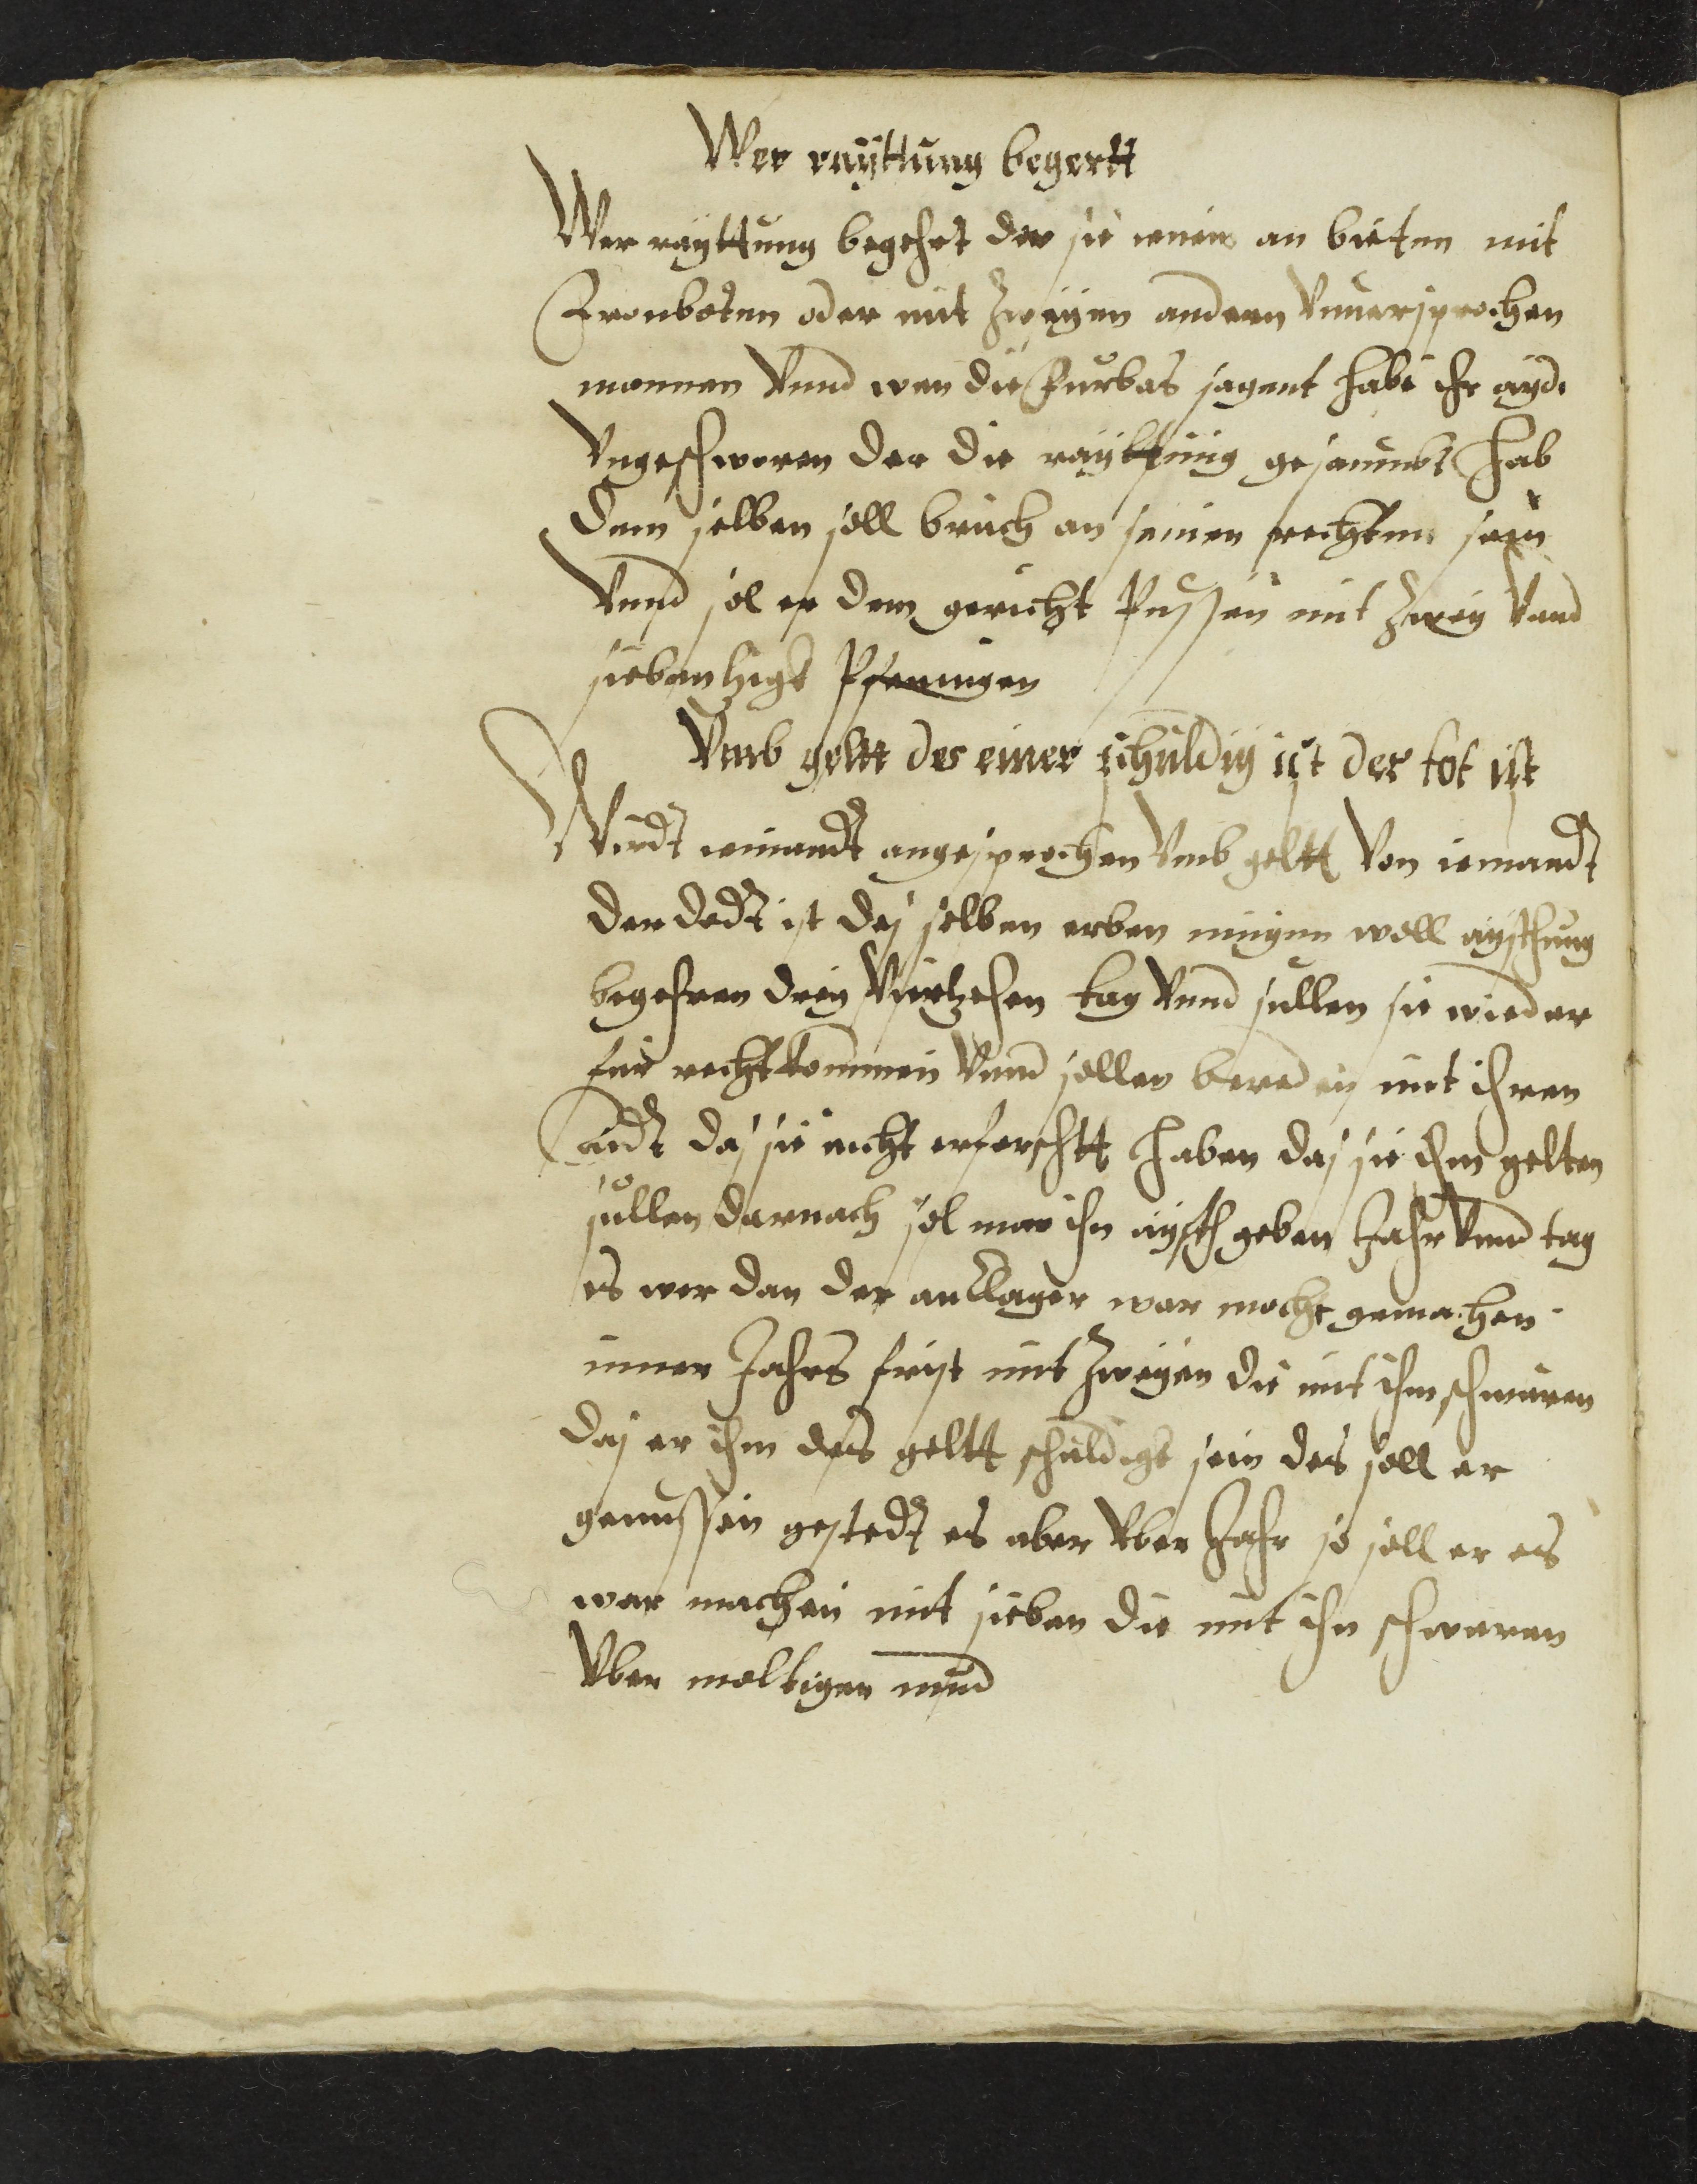 Wer rayttung begertt
Wer rayttung begehrt der sie ienem an bieten mit
Fronboten oder mit zweyen andern vnuersprochen
mannen vnnd wen die Furbas sagent habe ihr ayd
vngeschworen der die rayttung gesaumbt hab
dem selben soll bruch an seinen rechten sein
vnnd sol er dem gericht Pussen mit zwey vnnd
siebenzigk Pfeningen
Vmb geltt des einer schuldig ist der tot ist
Wirdt iemandt angesprochen vmb geltt von iemandt
der dedt ist des selben erben mugen woll aysthung
begehren drey vierzehen tag vnnd sullen sie wieder
fur recht kommen vnnd sollen bereden mit ihren
aidt das sie nicht erforschtt haben das sie ihm gelten
sullen darnach sol man ihn aysth geben Jahr vnnd tag
es wer dan der anklager war mocht gemachen
inner Jahrs frist mit zweyen die mit ihm schweren
das er ihm des geltt schuldigk sein des soll er
genussen gestedt es aber vber Jahr so soll er es
war machen mit sieben die mit ihn schweren
vber moltigen mund